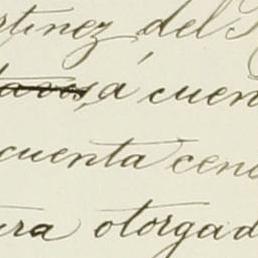 rtinez del
á cuen
cuenta cen
ura otorgad